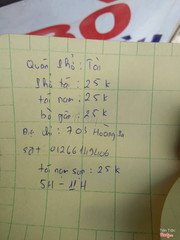 Quán phở : Tài
phở tái : 25k
tái nạm : 25k
bò gân : 25k
Địa chỉ : 703 Hoàng Sa
SĐT : 01266149606
tái nạm sụn : 25k
5H - 11H